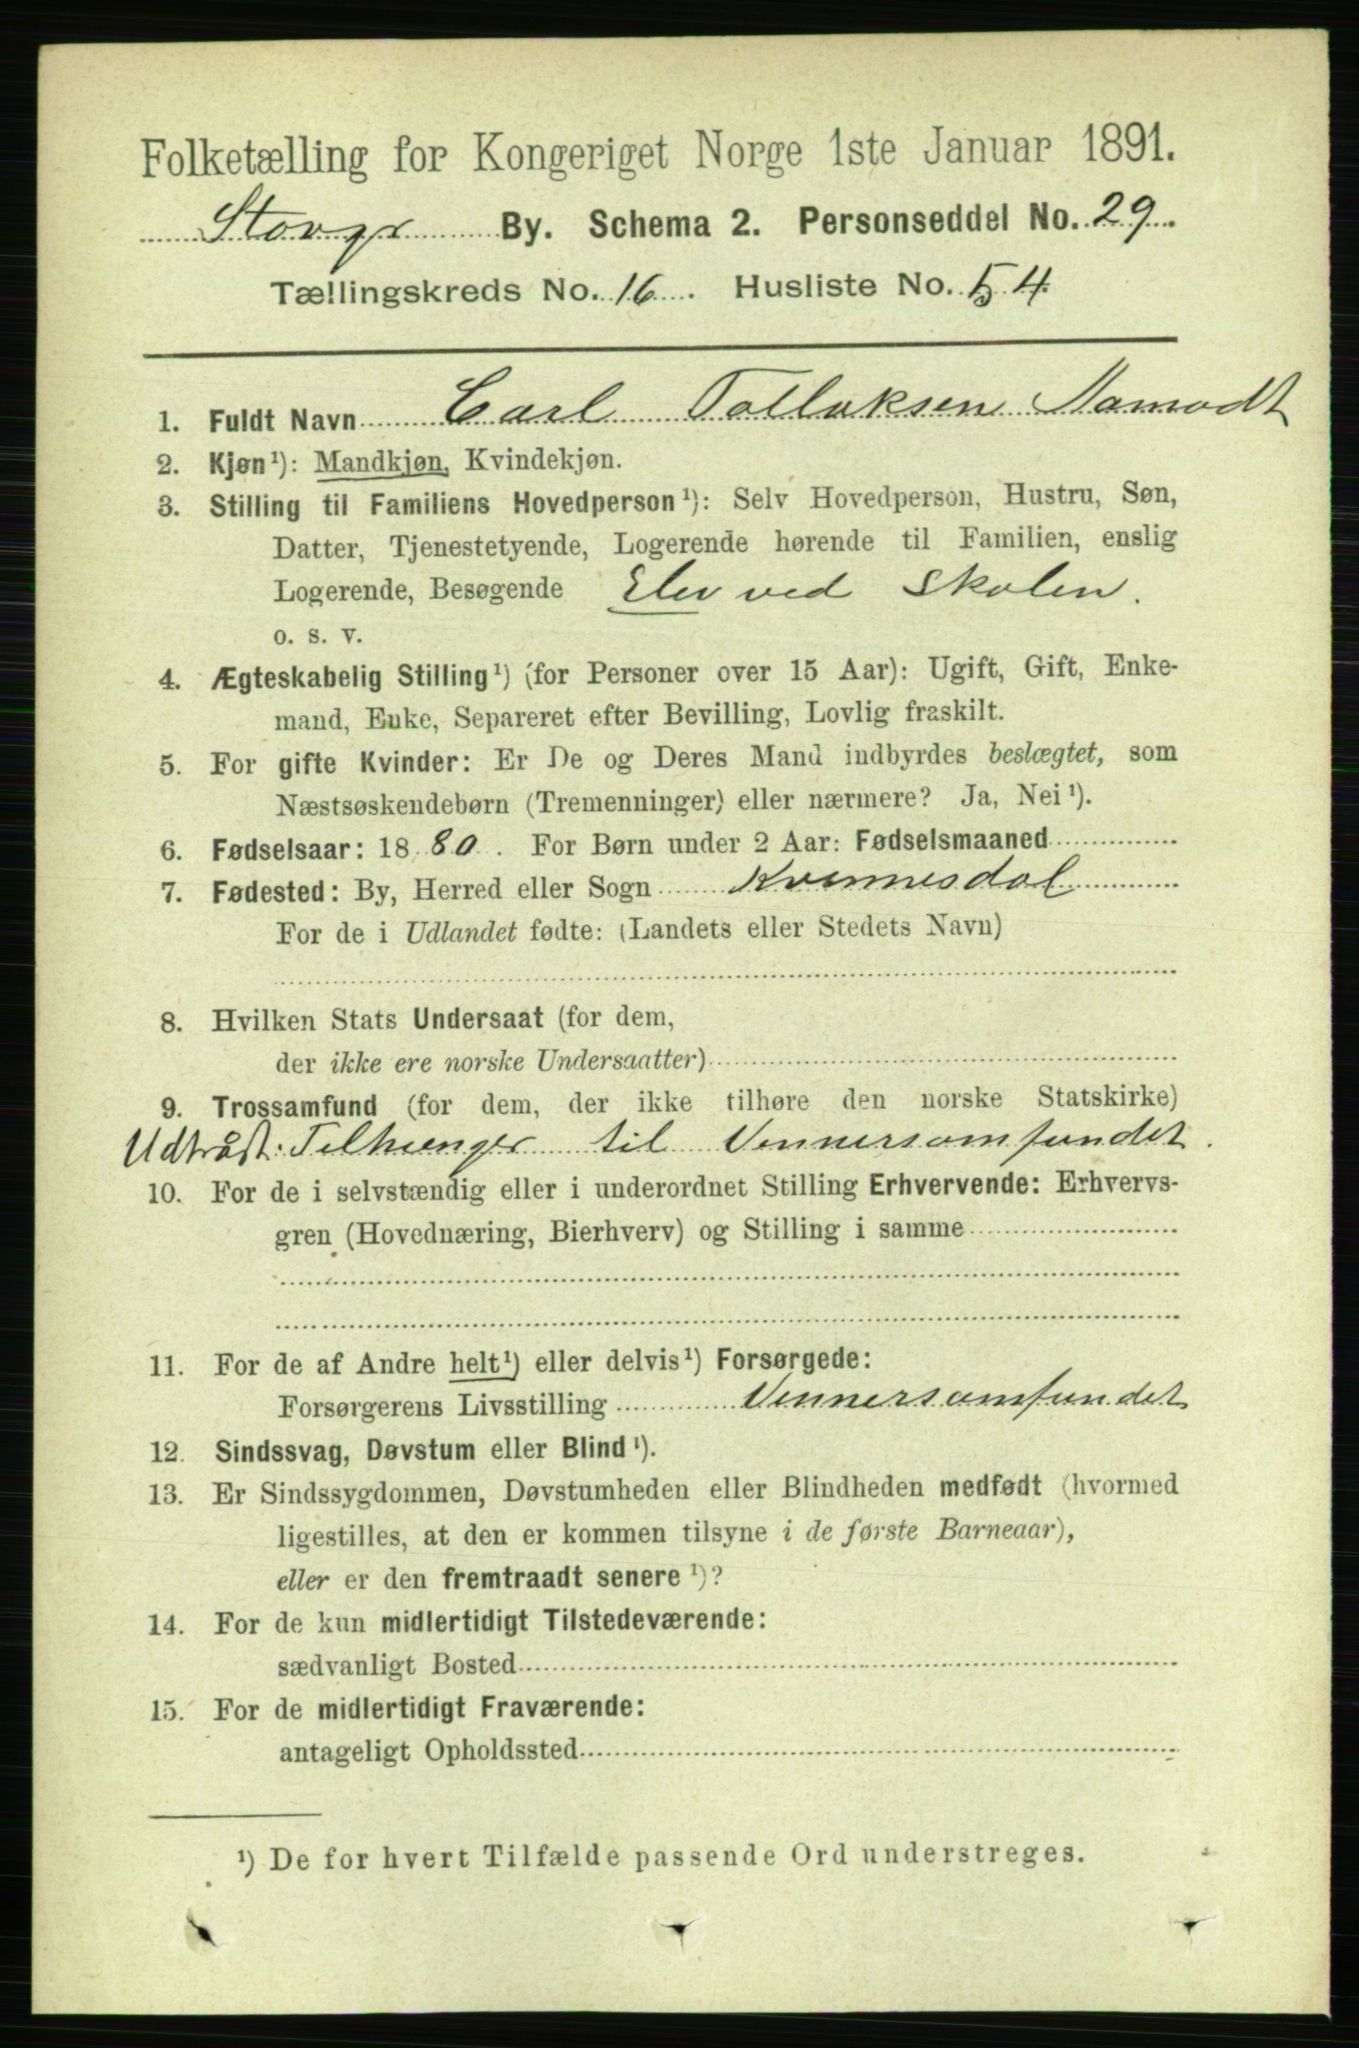 Folketælling for Kongeriget Norge 1ste Januar 1891.
Stavgr By. Schema 2. Personseddel No. 29.
Tællingskreds No. 16. Husliste No. 54.
1. Fuldt Navn Carl Tollaksen Aamodt
2. Kjøn¹): Mandkjøn, Kvindekjøn.
3. Stilling til Familiens Hovedperson¹): Selv Hovedperson, Hustru, Søn,
Datter, Tjenestetyende, Logerende hørende til Familien, enslig
Logerende, Besøgende Elev ved Skolen.
o. s. v.
4. Ægteskabelig Stilling¹) (for Personer over 15 Aar): Ugift, Gift, Enke-
mand, Enke, Separeret efter Bevilling, Lovlig fraskilt.
5. For gifte Kvinder: Er De og Deres Mand indbyrdes beslægtet, som
Næstsøskendebørn (Tremenninger) eller nærmere? Ja, Nei¹).
6. Fødselsaar: 1880. For Børn under 2 Aar: Fødselsmaaned
7. Fødested: By, Herred eller Sogn Kvinnesdal
For de i Udlandet fødte: (Landets eller Stedets Navn)
8. Hvilken Stats Undersaat (for dem,
der ikke ere norske Undersaatter)
9. Trossamfund (for dem, der ikke tilhøre den norske Statskirke)
Udtrådt. Tilhænger til Vennersamfundet.
10. For de i selvstændig eller i underordnet Stilling Erhvervende: Erhvervs-
gren (Hovednæring, Bierhverv) og Stilling i samme
11. For de af Andre helt¹) eller delvis¹) Forsørgede:
Forsørgerens Livsstilling Vennersamfundet
12. Sindssvag, Døvstum eller Blind¹).
13. Er Sindssygdommen, Døvstumheden eller Blindheden medfødt (hvormed
ligestilles, at den er kommen tilsyne i de første Barneaar),
eller er den fremtraadt senere¹)?
14. For de kun midlertidigt Tilstedeværende:
sædvanligt Bosted
15. For de midlertidigt Fraværende:
antageligt Opholdssted
¹) De for hvert Tilfælde passende Ord understreges.